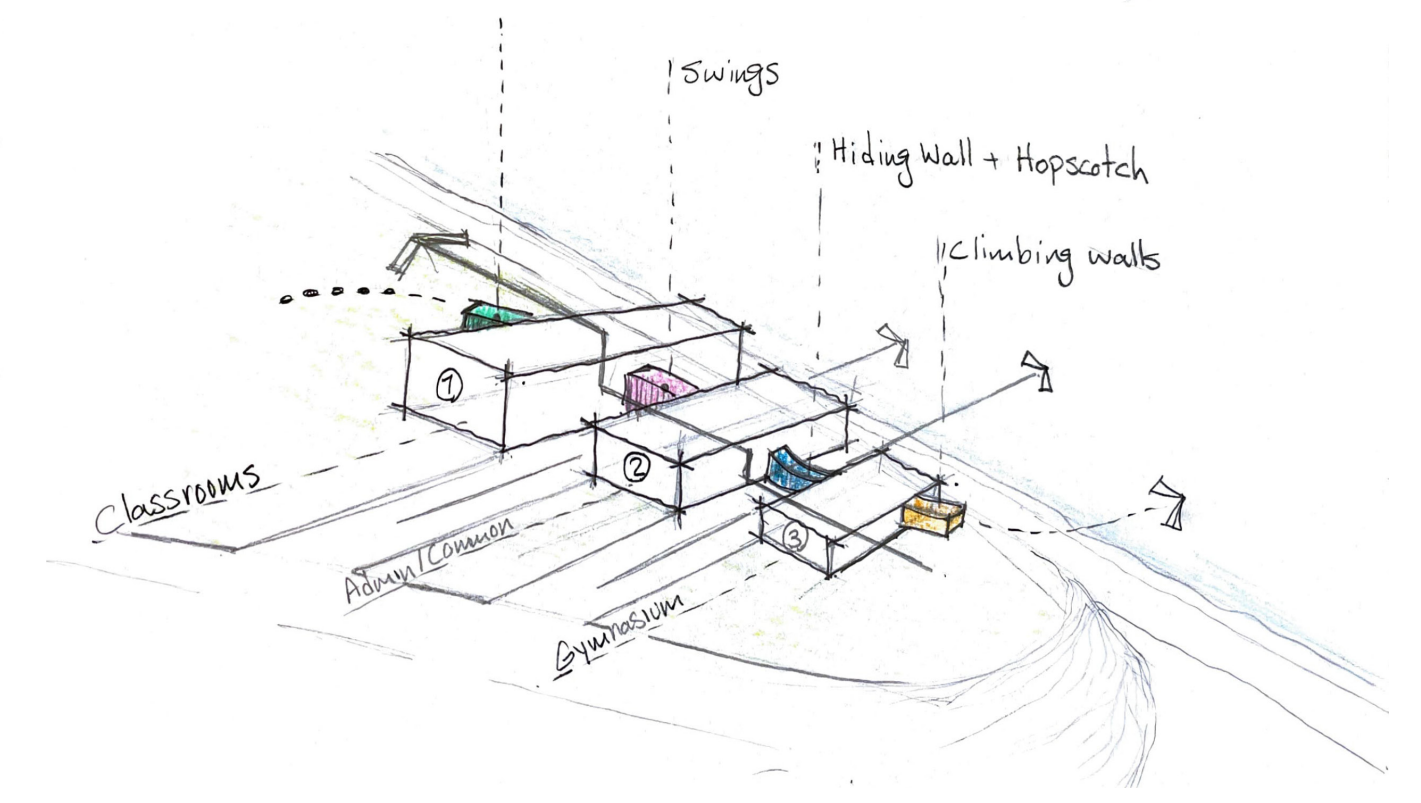 Swings
Hiding Wall + Hopscotch
Climbing walls
1
2
3
Classrooms
Admin/Common
Gymnasium